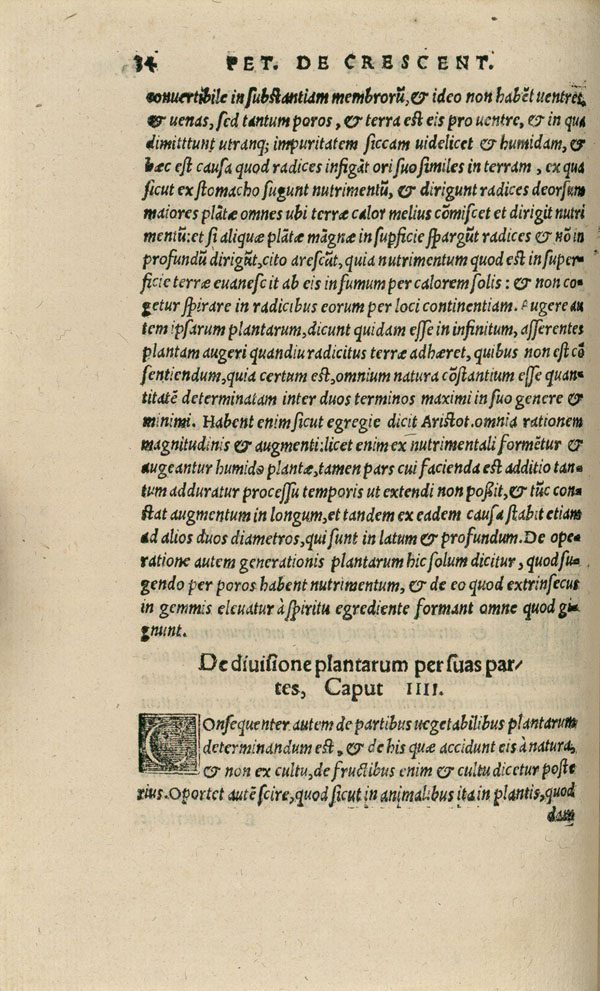 34 PET. DE CRESCENT.
conuertibile in substantiam membrorũ, & ideo non habẽt uentres
& uenas, sed tantum poros, & terra est eis pro uentre, & in qua
dimitttunt utranq; impuritatem siccam uidelicet & humidam, &
hæc est causa quod radices infigãt ori suo similes in terram, ex qua
sicut ex stomacho sugunt nutrimentũ, & dirigunt radices deorsum
maiores plãtæ omnes ubi terræ calor melius cõmiscet et dirigit nutri
mentũ: et si aliquæ plãtæ mãgnæ in supficie spargũt radices & nõ in
profundũ dirigũt, cito arescũt, quia nutrimentum quod est in super-
ficie terræ euanescit ab eis in fumum per calorem solis: & non co-
getur spirare in radicibus eorum per loci continentiam. Augere au
tem ipsarum plantarum, dicunt quidam esse in infinitum, asserentes
plantam augeri quandiu radicitus terræ adhæret, quibus non est cõ
sentiendum, quia certum est, omnium natura cõstantium esse quan-
titatẽ determinatam inter duos terminos maximi in suo genere &
minimi. Habent enim sicut egregie dicit Aristot. omnia rationem
magnitudinis & augmenti: licet enim ex nutrimentali formẽtur &
augeantur humido plantæ, tamen pars cui facienda est additio tan-
tum adduratur processu temporis ut extendi non poßit, & tũc con-
stat augmentum in longum, et tandem ex eadem causa stabit etiam
ad alios duos diametros, qui sunt in latum & profundum. De ope-
ratione autem generationis plantarum hic solum dicitur, quod su-
gendo per poros habent nutrimentum, & de eo quod extrinsecus
in gemmis eleuatur à spiritu egrediente formant omne quod gi-
gnunt.
De diuisione plantarum per suas par-
tes, Caput IIII.
COnsequenter autem de partibus uegetabilibus plantarum
determinandum est, & de his quæ accidunt eis à natura,
& non ex cultu, de fructibus enim & cultu dicetur poste
rius. Oportet autẽ scire, quod sicut in animalibus ita in plantis, quod
dam